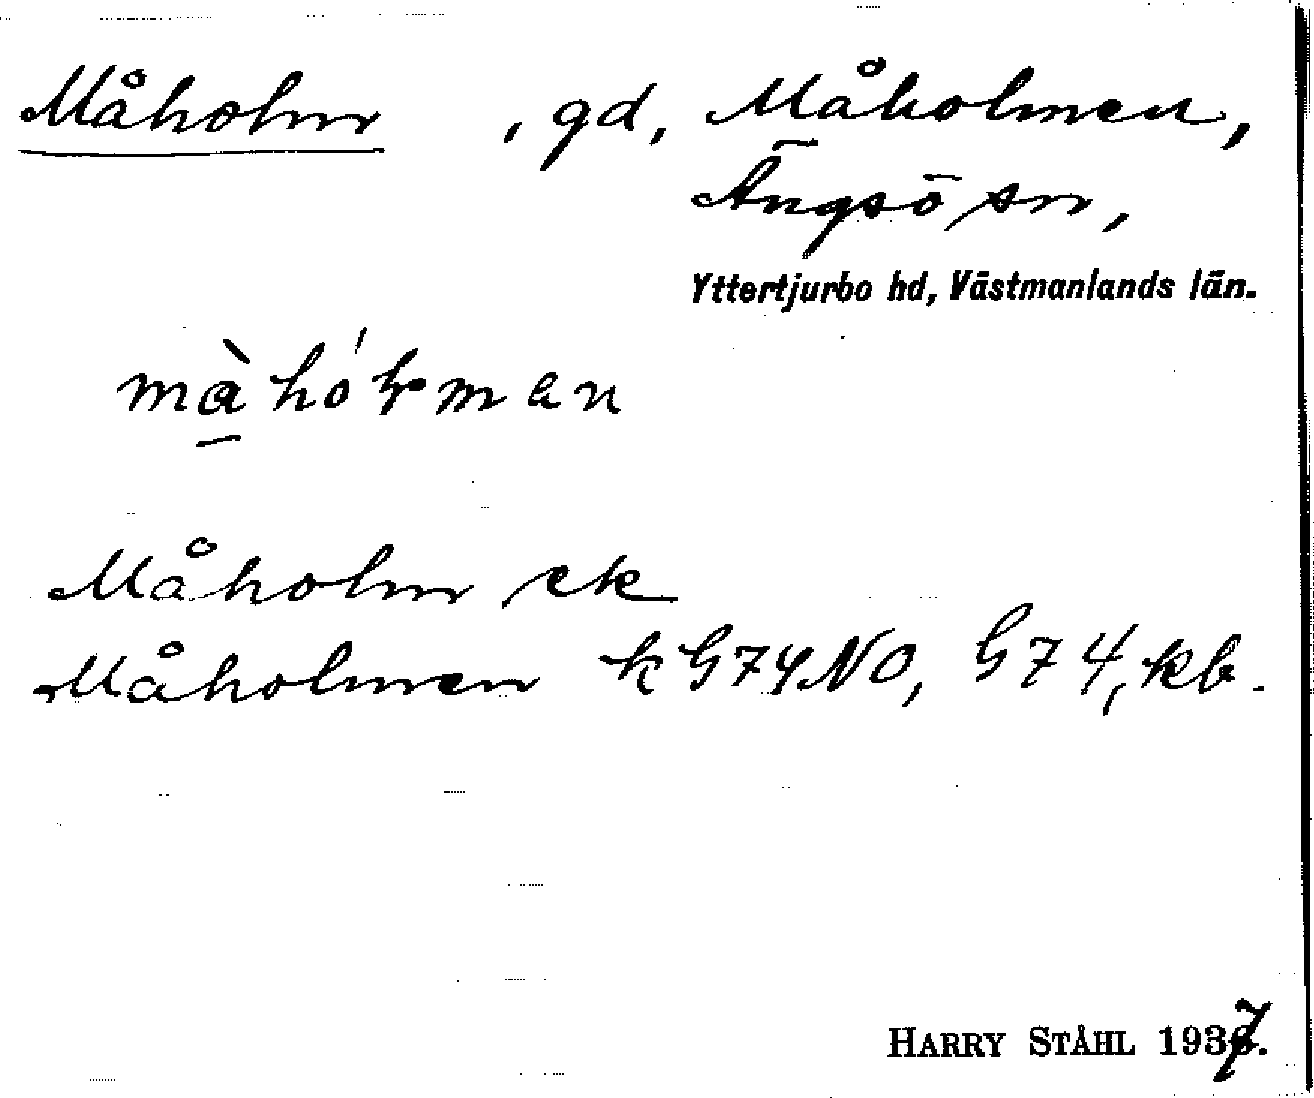 Måholm, gd, Måholmen,
Ängsö sn,
Yttertjurbo hd, Västmanlands län.
Måholm ek
Måholmen k G74NO, G74, kb.
HARRY STÅHL 1937.